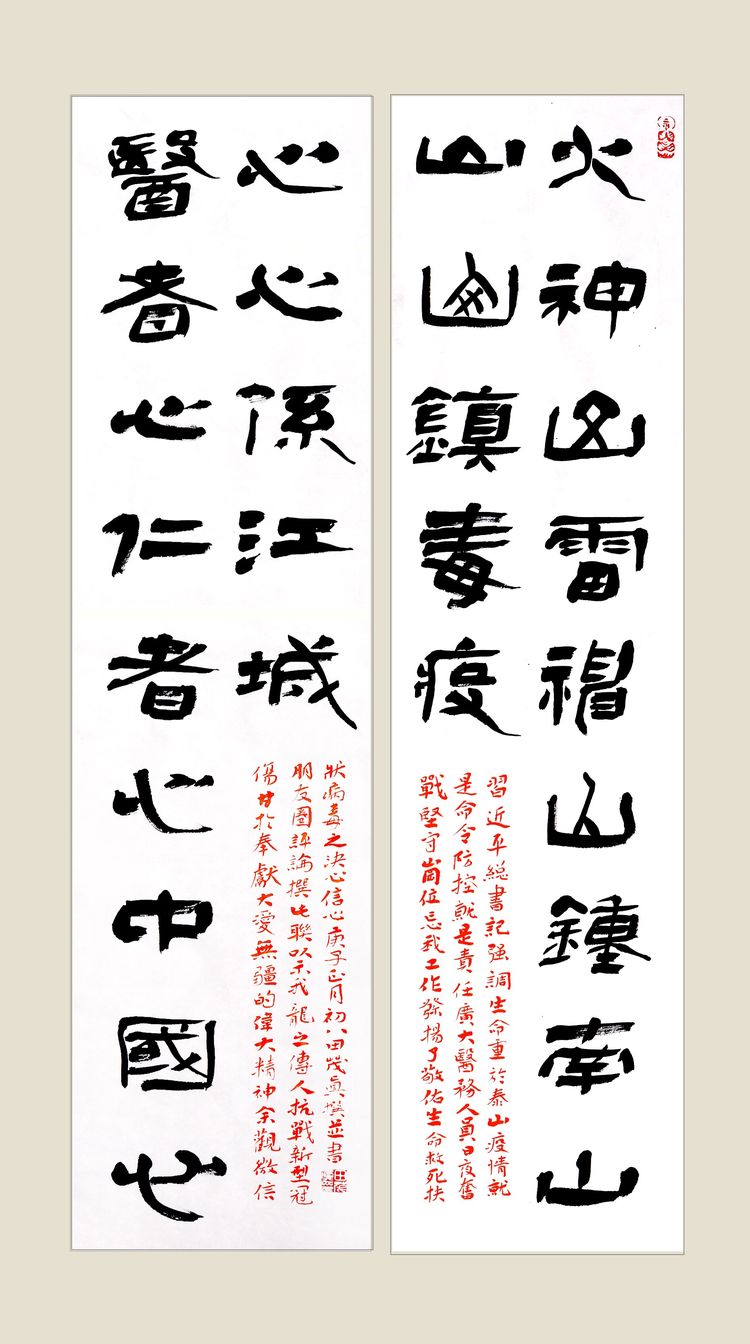 火神山雷神山鍾南山
山山鎮毒疫
習近平總書記强調生命重於泰山疫情就
是命令防控就是責任廣大醫務人員日夜奮
戰堅守崗位忘我工作發揚了敬佑生命救死扶
醫者心仁者心中國心
心心係江城
傷甘於奉獻大愛無疆的偉大精神余觀微信
朋友圈評論撰此聯以示我龍之傳人抗戰新型冠
狀病毒之決心信心庚子正月初八田茂真撰並書